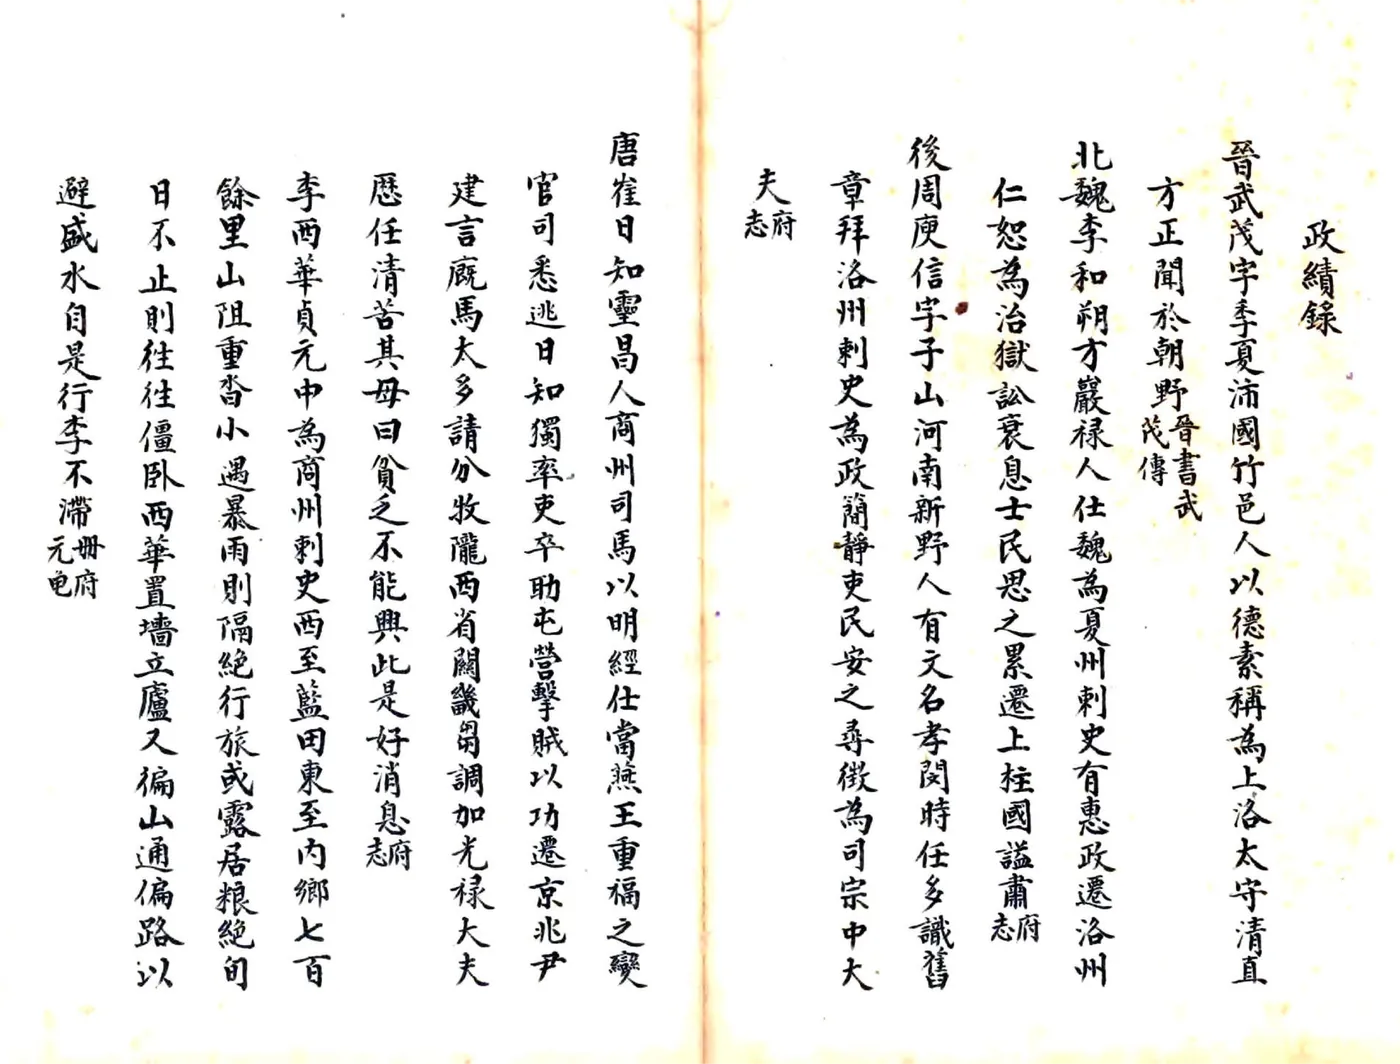 政績錄
晉武茂字季夏沛國竹邑人以德素稱為上洛太守清直
方正聞於朝野晉書武茂傳
北魏李和朔方巖祿人仕魏為夏州刺史有惠政遷洛州
仁恕為治獄訟衰息士民思之累遷上柱國謚肅府志
後周庾信字子山河南新野人有文名孝閔時任多識舊
章拜洛州刺史為政簡靜吏民安之尋徵為司宗中大
夫府志
唐崔日知靈昌人商州司馬以明經仕當譙王重福之變
官司悉逃日知獨率吏卒助屯營擊賊以功遷京兆尹
建言廄馬太多請分牧隴西省關畿芻調加光祿大夫
歷任清苦其母曰貧乏不能興此是好消息府志
李西華貞元中為商州刺史西至藍田東至內鄉七百
餘里山阻重沓小遇暴雨則隔絕行旅或露居粮絕旬
日不止則往往僵臥西華置墻立廬又徧山通偏路以
避盛水自是行李不滯冊府元龟